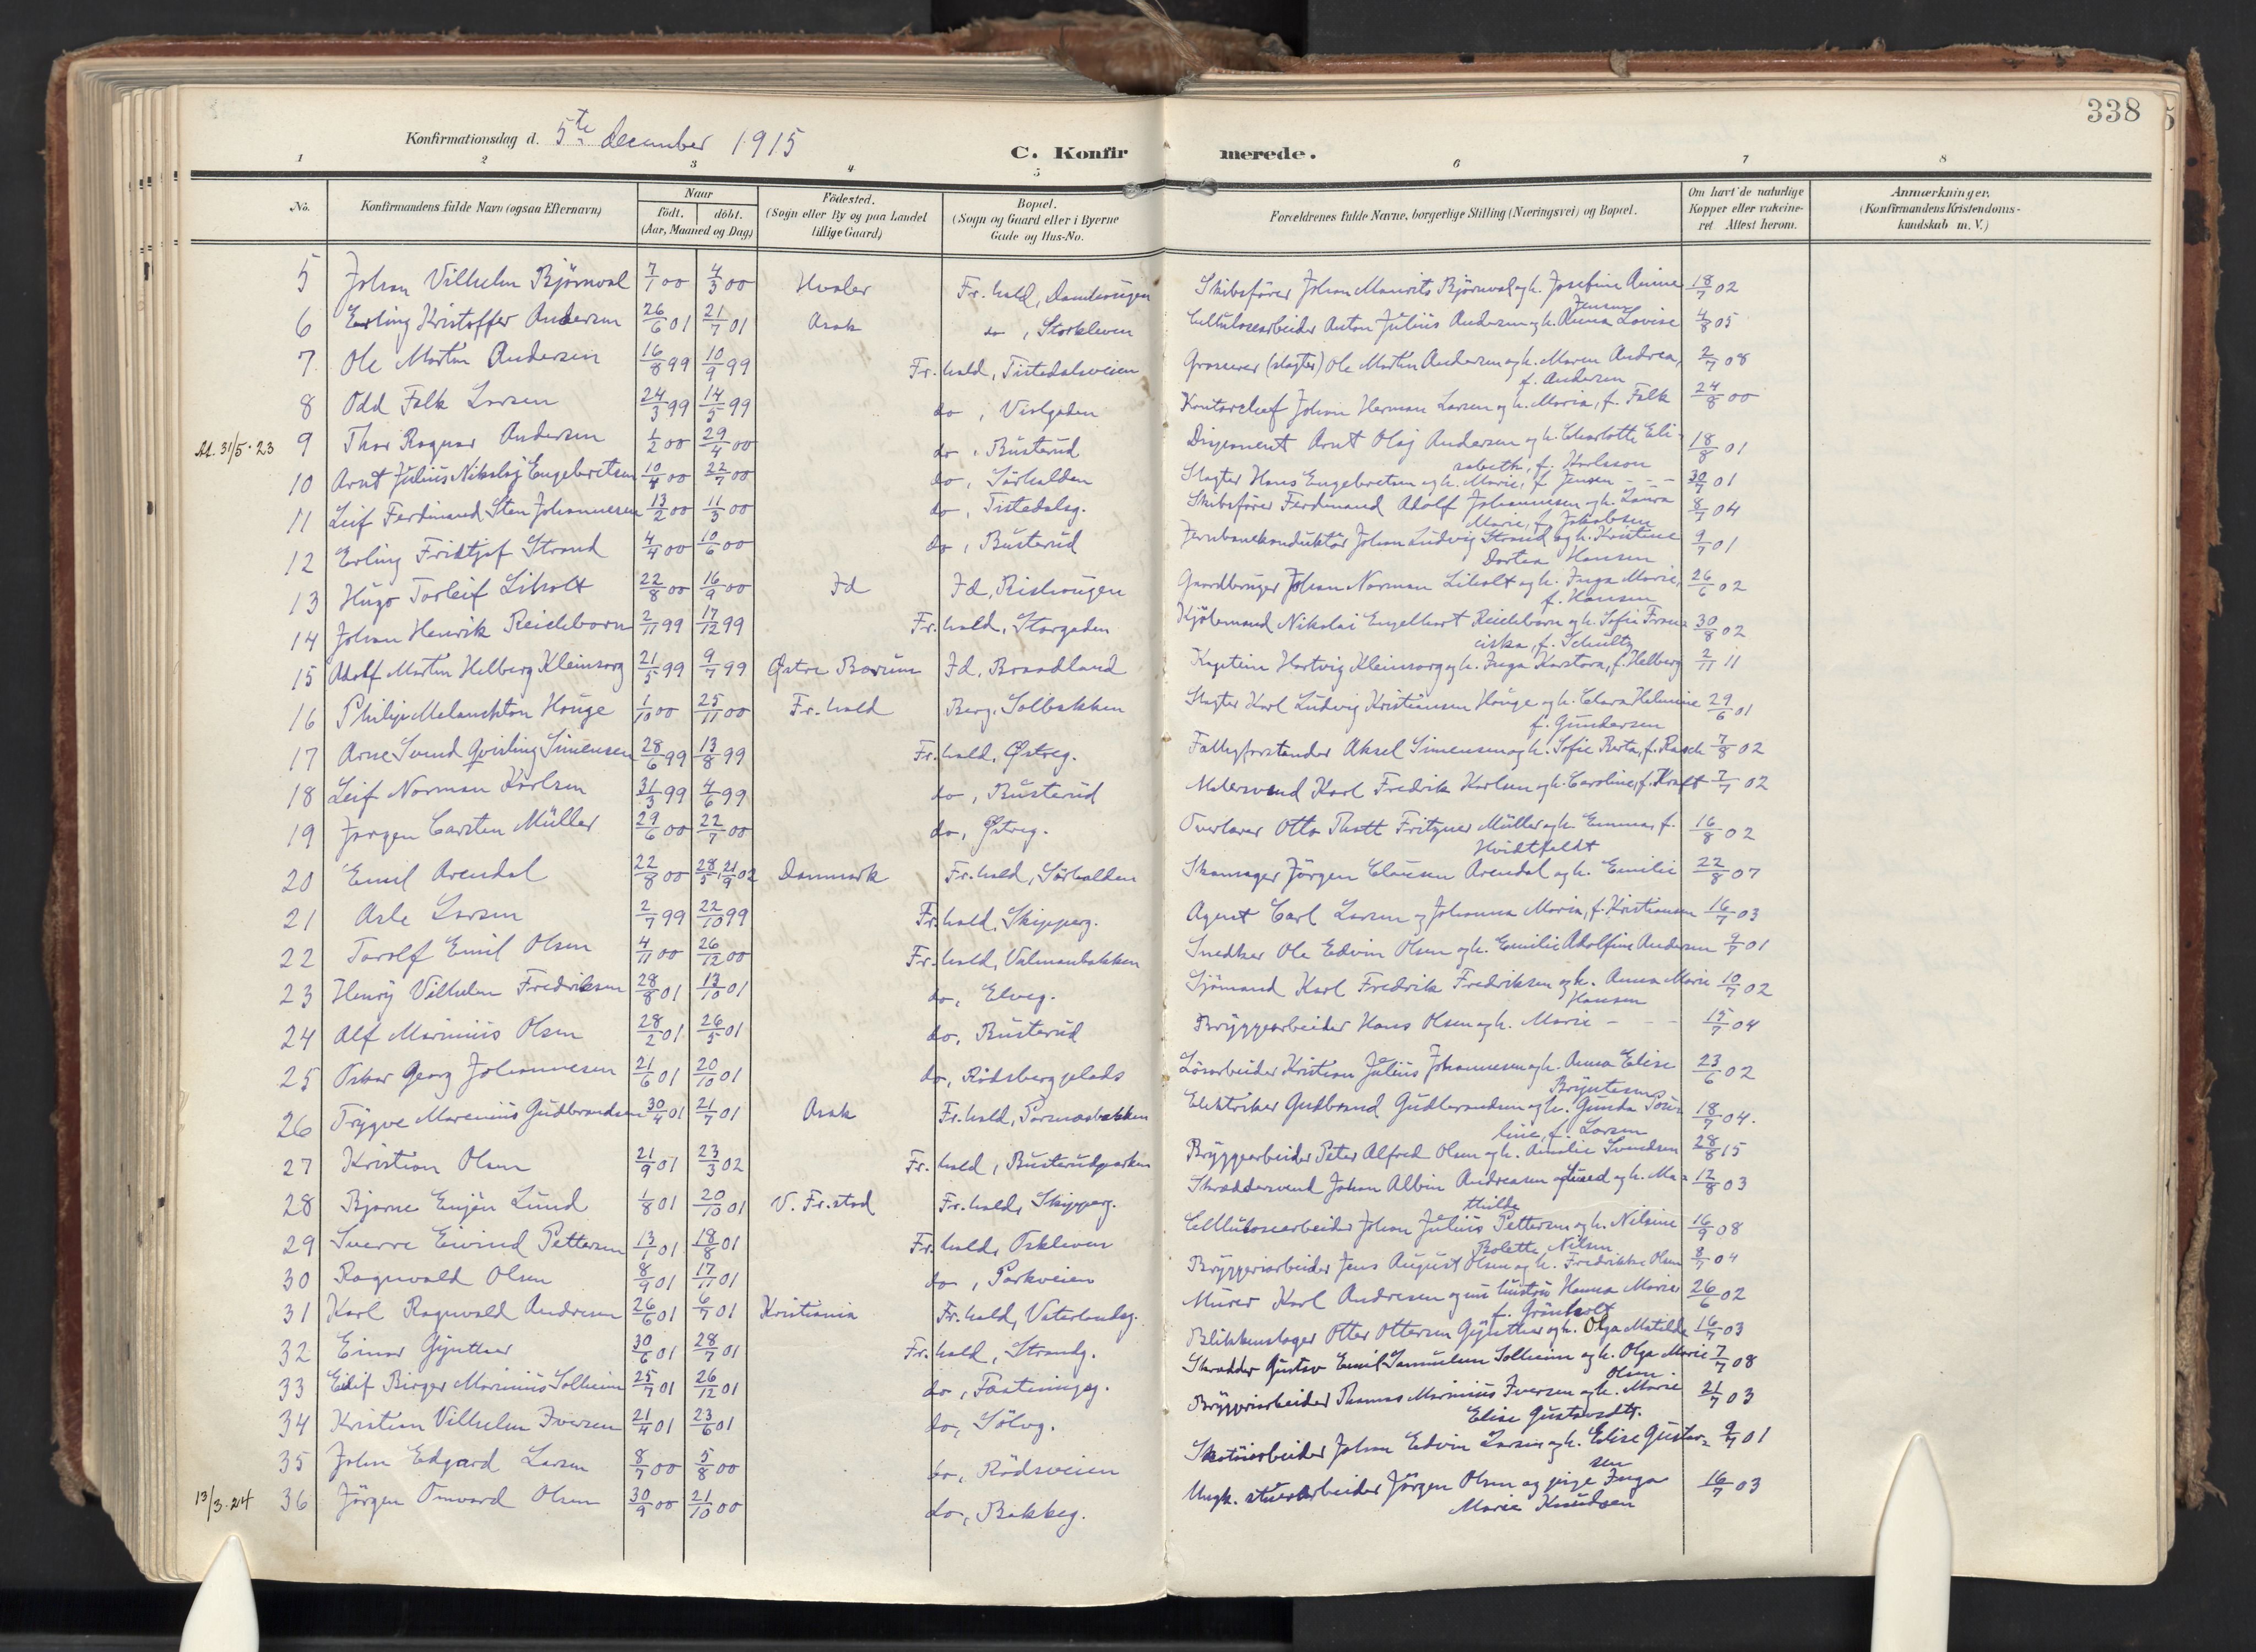 338
Konfirmationsdag d. 5te december 1915
C. Konfirmerede.
1 2 3 4 5 6 7 8
No. Konfirmandens fulde Navn (ogsaa Efternavn) Naar født. døbt. (Aar, Maaned og Dag) Födested. (Sogn eller By og paa Landet tillige Gaard) Bopæl. (Sogn og Gaard eller i Byerne Gade og Hus-No. Forældrenes fulde Navne, borgerlige Stilling (Næringsvei) og Bopæl. Om havt de naturlige Kopper eller vakcineret Attest herom. Anmærkninger. (Konfirmandens Kristendomskundskab m. V.)
5 Johan Vilhelm Björnvol 7/1 00 4/3 00 Hvaler Fr.hald, Damhaugen Skibsfører Johan Maurits Björnvol og h. Josefine Amine Jensen 18/7 02
6 Erling Kristoffer Andersen 26/6 01 21/7 01 Asak do, Storkleven Celluloсearbeider Anton Julius Andersen og h. Anna Lovise 4/8 05
7 Ole Martin Andersen 16/8 99 10/9 99 Fr.hald, Tistedalsveien Grosserer (slagter) Ole Martin Andersen og h. Maren Andrea, f. Andersen 2/7 08
8 Odd Falk Larsen 24/3 99 14/5 99 do, Violgaden Kontorchef Johan Herman Larsen og h. Maria, f. Falk 24/8 00
At. 31/5·23 9 Thor Ragnar Andersen 1/2 00 29/4 00 do, Busterud Disponent Arnt Olaj Andersen og h. Charlotte Elisabeth, f. Karlsson 18/8 01
10 Arnt Julius Nikolaj Engebretsen 10/4 00 22/7 00 do, Sørhalden Slagter Hans Engebretsen og h. Marie, f. Jensen - - - 30/7 01
11 Leif Ferdinand Sten Johannesen 13/2 00 11/3 00 do, Tistedalsg. Skibsfører Ferdinand Adolf Johannesen og h. Laura Marie, f. Jakobsen 8/7 04
12 Erling Fridtjof Strand 4/4 00 10/6 00 do, Busterud Jernbanekonduktør Johan Ludvig Strand og h. Kristine Dortea Hansen 9/7 01
13 Hugo Torleif Liholt 22/8 00 16/9 00 Id Id, Rishaugen Gaardbruger Johan Norman Liholt og h. Inga Marie, f. Hansen 26/6 02
14 Johan Henrik Reichborn 2/11 99 17/12 99 Fr.hald, Storgaden Kjøbmand Nikolai Engelhart Reichborn og h. Sofie Franciska, f. Schultz 30/8 02
15 Adolf Martin Helberg Kleinsorg 21/5 99 9/7 99 Østre Bærum Id, Braadland Kaptein Hartvig Kleinsorg og h. Inga Karstora, f. Helberg 2/11 11
16 Philip Melanchton Hauge 1/10 00 25/11 00 Fr.hald Berg, Solbakken Slagter Karl Ludvig Kristiansen Hauge og h. Clara Helmine f. Gundersen 29/6 01
17 Arne Svend Qvisling Simensen 28/6 99 13/8 99 Fr.hald, Østreg. Fattigforstander Aksel Simensen og h. Sofie Berta, f. Rasch 7/8 02
18 Leif Norman Karlsen 31/3 99 4/6 99 do, Busterud Malersvend Karl Fredrik Karlsen og h. Caroline, f. Kraft 7/7 02
19 Jørgen Carsten Müller 29/6 00 22/7 00 do, Østreg. Overlærer Otto Thott Fritzner Müller og h. Emma, f. Hvidtfeldt 16/8 02
20 Emil Arendal 22/8 00 28/5, 21/9 02 Danmark Fr.hald, Sørhalden Skomager Jörgen Clausen Arendal og h. Emilie 22/8 07
21 Asle Larsen 2/7 99 22/10 99 Fr.hald, Skipperg. Agent Carl Larsen og Johanna Maria, f. Kristiansen 16/7 03
22 Torolf Emil Olsen 4/11 00 26/12 00 Fr.hald, Valmanbakken Snedker Ole Edvin Olsen og h. Emilie Adolfine Andersen 9/7 01
23 Henry Vilhelm Fredriksen 28/8 01 13/10 01 do, Elveg. Sjömand Karl Fredrik Fredriksen og h. Anna Marie Hansen 10/7 02
24 Alf Marinius Olsen 28/2 01 26/5 01 do, Busterud Bryggearbeider Hans Olsen og h. Marie - - - 15/7 04
25 Oskar Georg Johannesen 21/6 01 20/10 01 do, Rödsbergplads Lösarbeider Kristian Julius Johannesen og h. Anna Elise Bryntesen 23/6 02
26 Trygve Marenius Gudbrandsen 30/4 01 21/7 01 Asak Fr.hald, Porsnæsbakken Elektriker Gudbrand Gudbrandsen og h. Gunda Pouline, f. Larsen 18/7 04.
27 Kristian Olsen 21/9 01 23/3 02 Fr.hald, Busterudparken Bryggearbeider Peter Alfred Olsen og h. Amalie Svendsen 28/8 15
28 Bjarne Enjön Lund 1/8 01 20/10 01 V. Fr.stad Fr.hald, Skipperg. Skræddersvend Johan Albin Andreasen Lund og h. Mathilde 12/8 03
29 Sverre Eivind Pettersen 13/1 01 18/8 01 Fr.hald, Oskleven Cellulosearbeider Johan Julius Pettersen og h. Nilsine Bolette Nilsen 16/9 08
30 Ragnvald Olsen 8/9 01 17/11 01 do, Parkveien Bryggeriarbeider Jens August Olsen og h. Fredrikke Olsen 8/7 04
31 Karl Ragnvald Andresen 26/6 01 6/7 01 Kristiania Fr.hald, Vaterlandsg. Murer Karl Andresen og hustru Hanna Marie f. Grönholt 26/6 02
32 Einar Gynther 30/6 01 28/7 01 Fr.hald, Strandg. Blikkenslager Otter Ottersen Gynther og h. Olga Matilde 16/7 03
33 Eilif Birger Marinius Solheim 25/7 01 26/12 01 do, Fæstningsg. Skrædder Gustav Emil Samuelsen Solheim og h. Olga Marie Olsen. 7/7 08
34 Kristian Vilhelm Iversen 21/4 01 23/6 01 do, Sölvg. Bryggeriarbeider Thomas Marinius Iversen og h. Marie Elise Gustavsdtr. 21/7 03
35 John Edgard Larsen 8/7 00 5/8 00 do, Rödsveien Skotöiarbeider Johan Edvin Larsen og h. Elise Gustavsen 9/7 01
13/3·24 36 Jörgen Omvard Olsen 30/9 00 21/10 00 do, Bakkeg. Ungk. stuerarbeider Jörgen Olsen og pige Inga Marie Knudsen 16/7 03